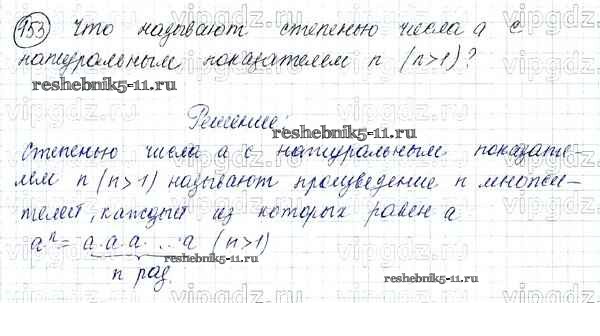 153 Что называют степенью числа a с
натуральным показателем n (n>1)?
reshebnik5-11.ru
Решение:
reshebnik5-11.ru
Степенью числа a с натуральным показате-
лем n (n>1) называют произведение n множи-
телей, каждый из которых равен a
aⁿ = a·a·a·...·a (n>1)
n раз.
reshebnik5-11.ru
vipgdz.ru